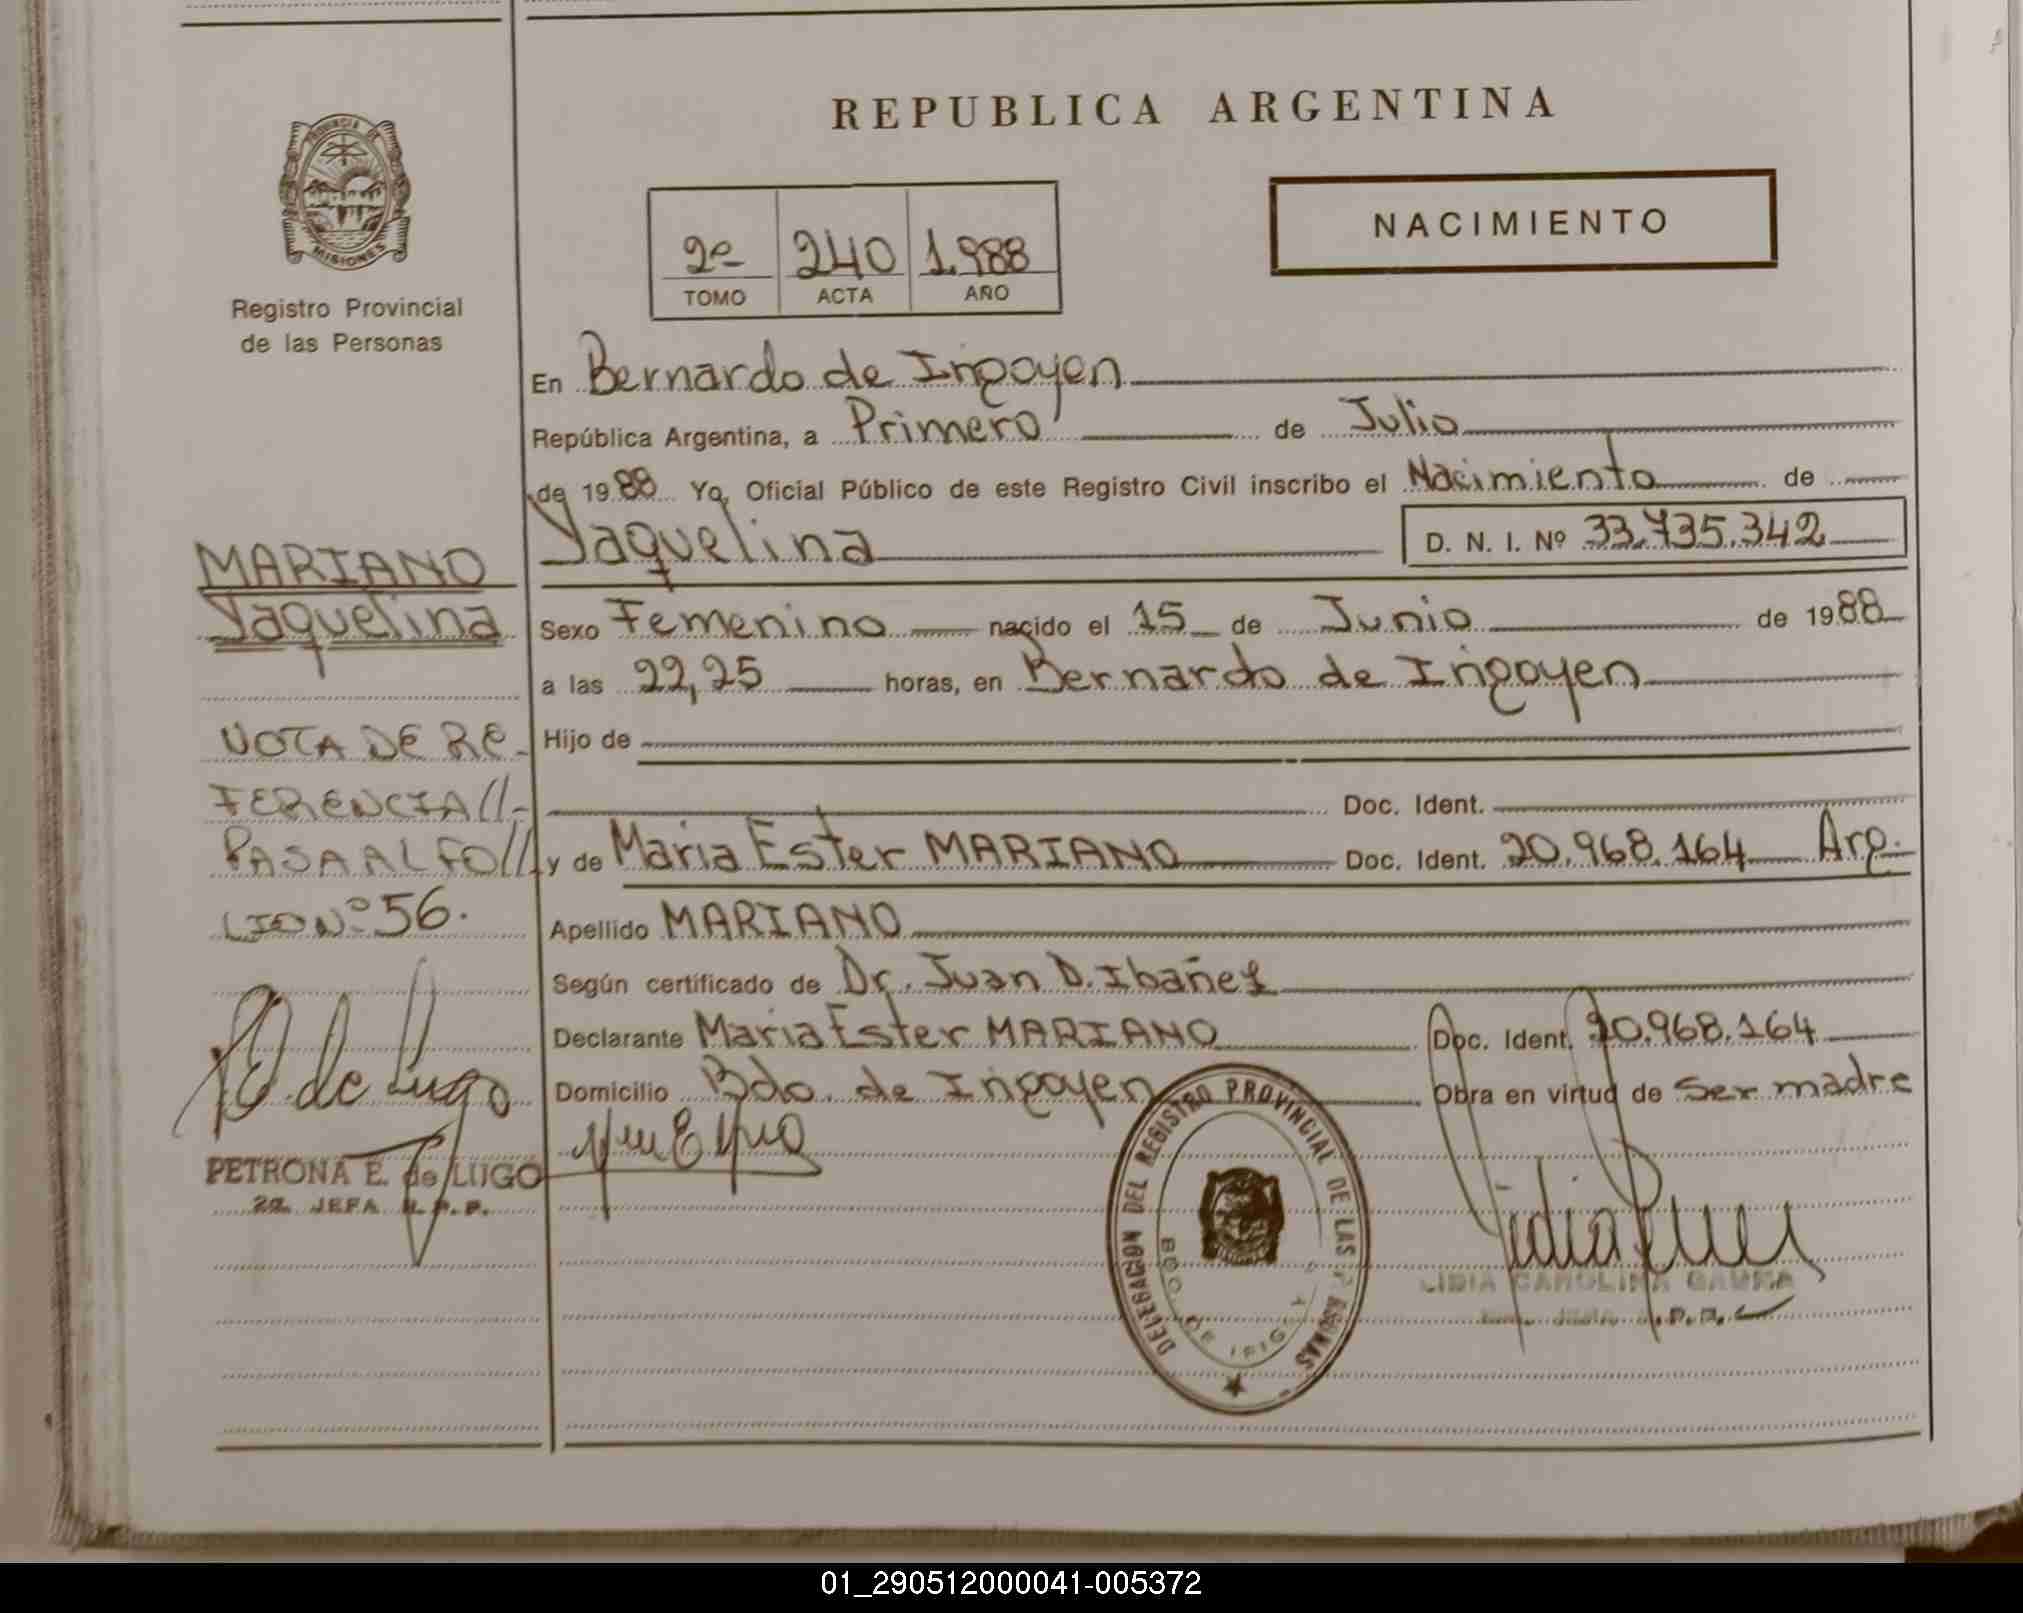 REPUBLICA ARGENTINA
PROVINCIA DE
MISIONES
Registro Provincial
de las Personas
NACIMIENTO
2º 240 1.988
TOMO ACTA AÑO
En Bernardo de Irigoyen
República Argentina, a Primero de Julio
de 1988 Yo, Oficial Público de este Registro Civil inscribo el Nacimiento de
Yaquelina D. N. I. Nº 33.735.342
MARIANO
Yaquelina
Sexo Femenino nacido el 15 de Junio de 1988
a las 22,25 horas, en Bernardo de Irigoyen
Hijo de
Doc. Ident.
y de Maria Ester MARIANO Doc. Ident. 20.968.164 Arg.
Apellido MARIANO
Según certificado de Dr. Juan D. Ibañez
Declarante Maria Ester MARIANO Doc. Ident. 20.968.164
Domicilio Bdo. de Irigoyen Obra en virtud de Ser madre
NOTA DE RE-
FERENCIA//-
PASA AL FO//
LIO Nº 56.
de Lugo
PETRONA E. de LUGO
2a. JEFA R.P.P.
DELEGACION DEL REGISTRO PROVINCIAL DE LAS PERSONAS
BDO DE IRIGOYEN
LIDIA CAROLINA
01_290512000041-005372